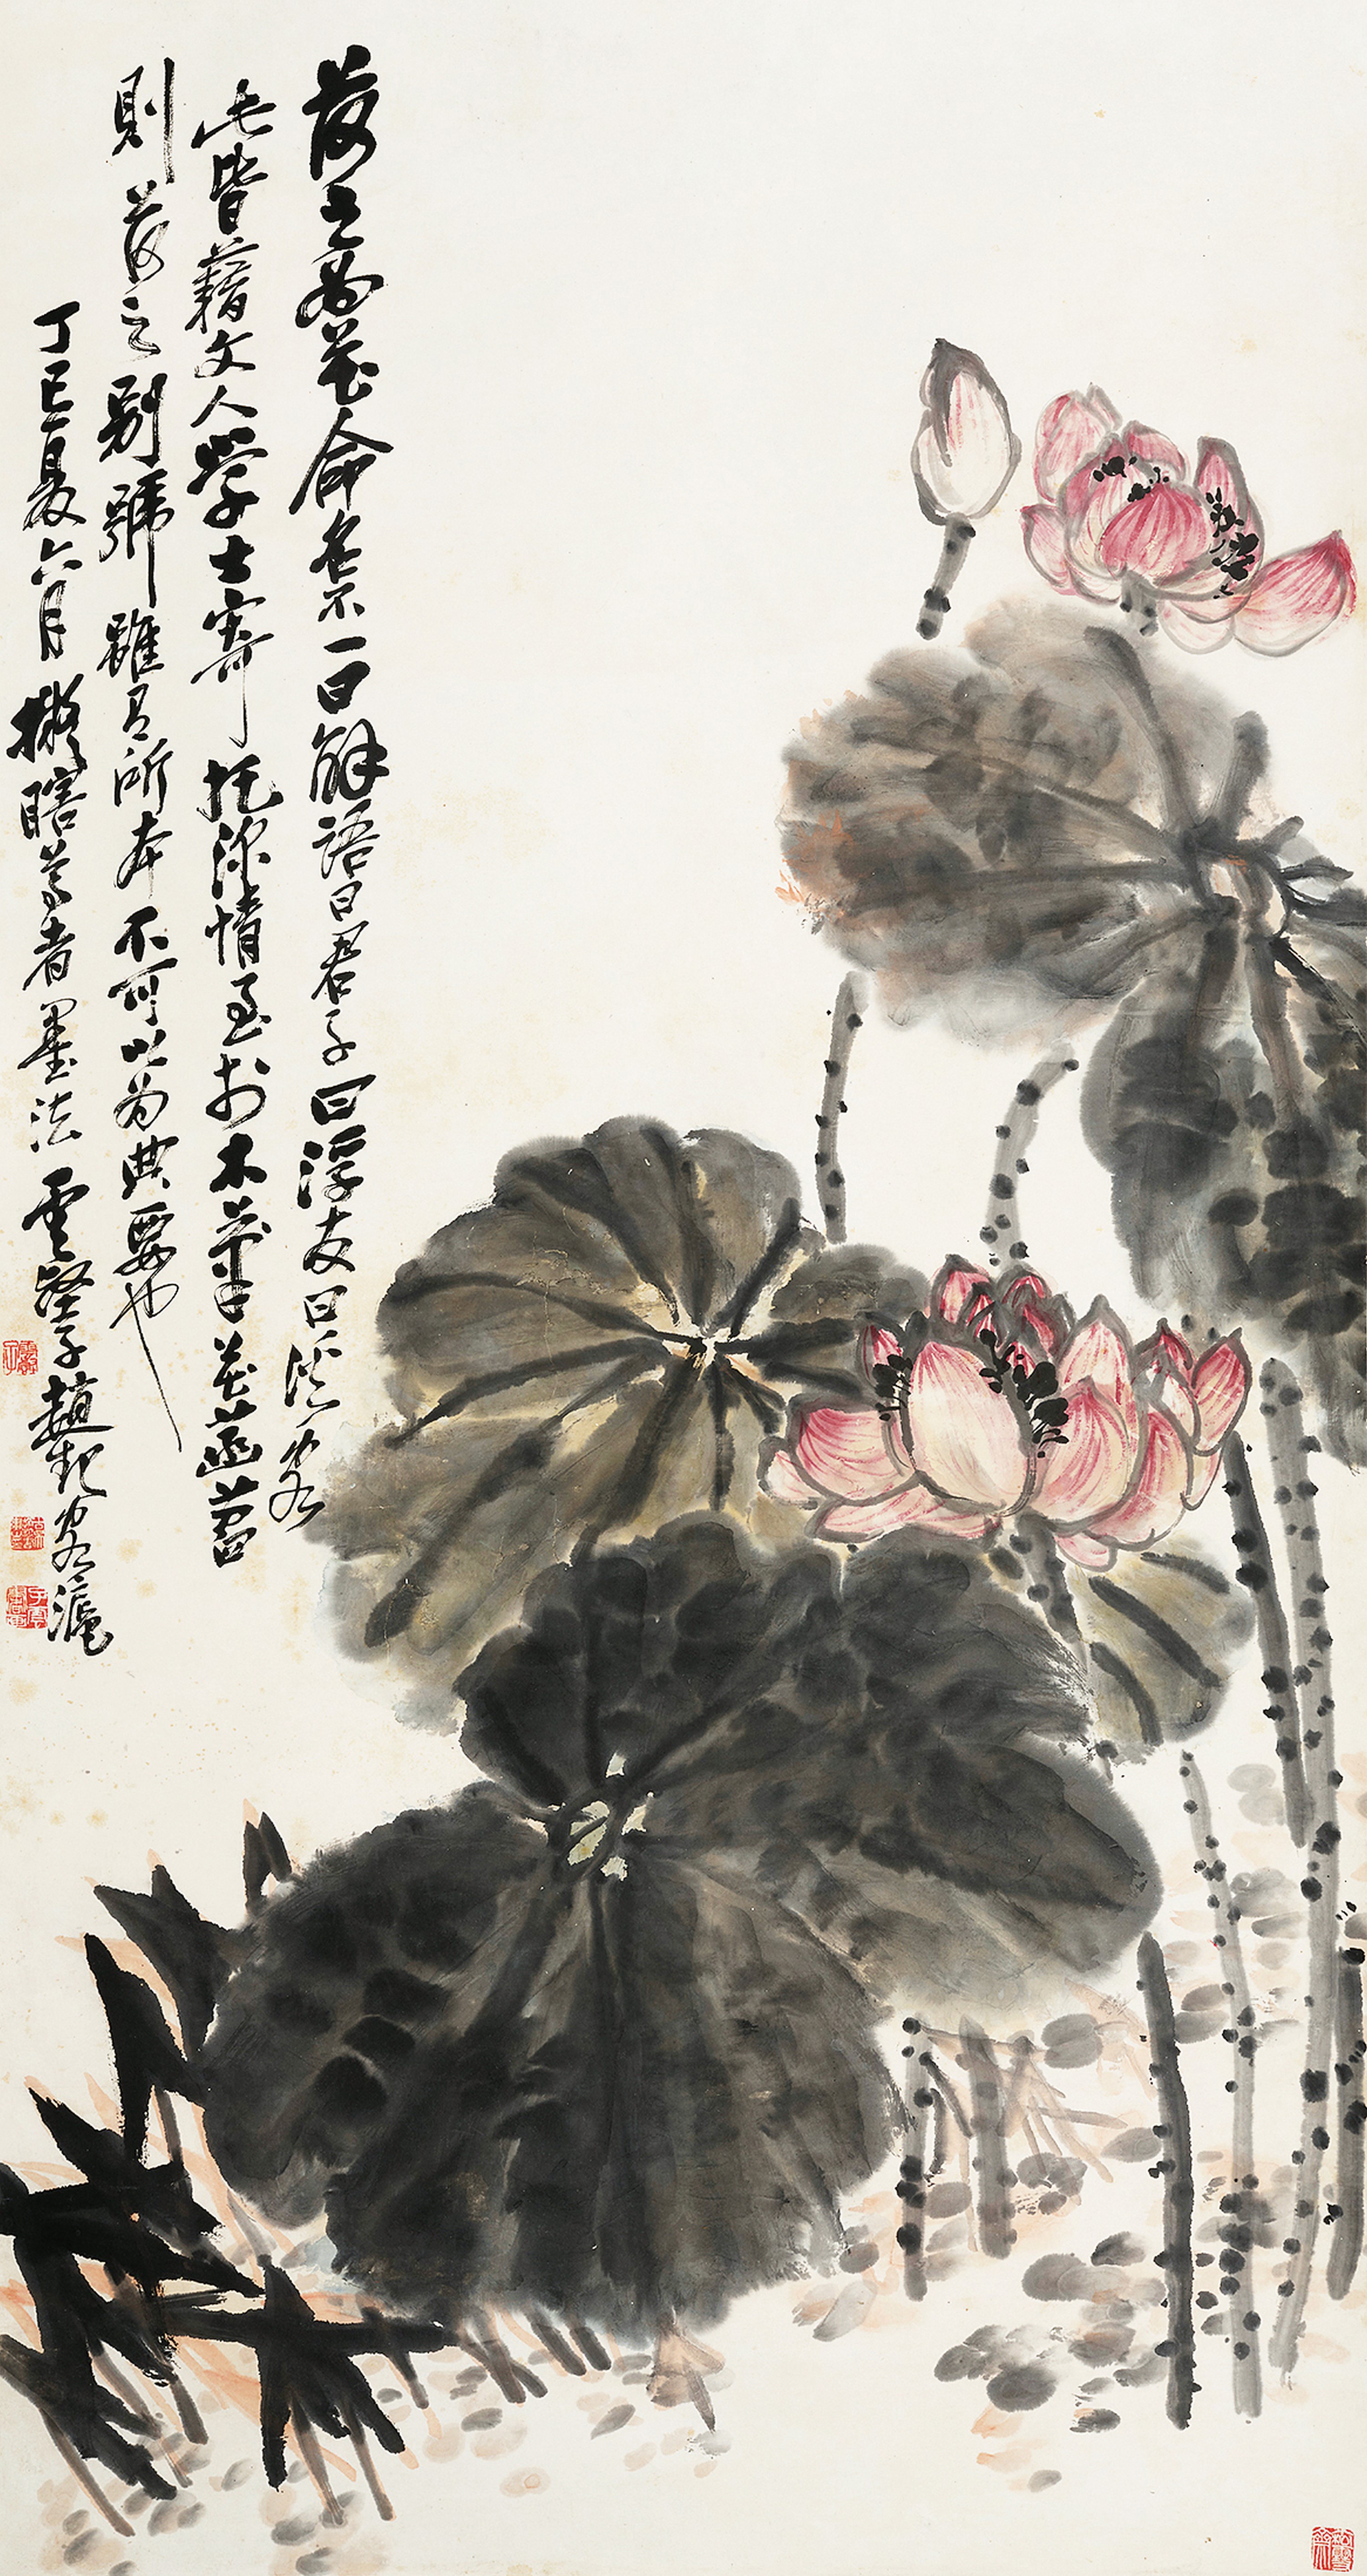 荷之為花命名不一曰解語曰君子曰浮友曰溪客
此皆藉文人學士寄托深情至於水華芙蕖菡萏
則荷之別號雖有所本不可以為典要也
丁巳夏六月擬瞎尊者墨法雲壑子趙起客滬